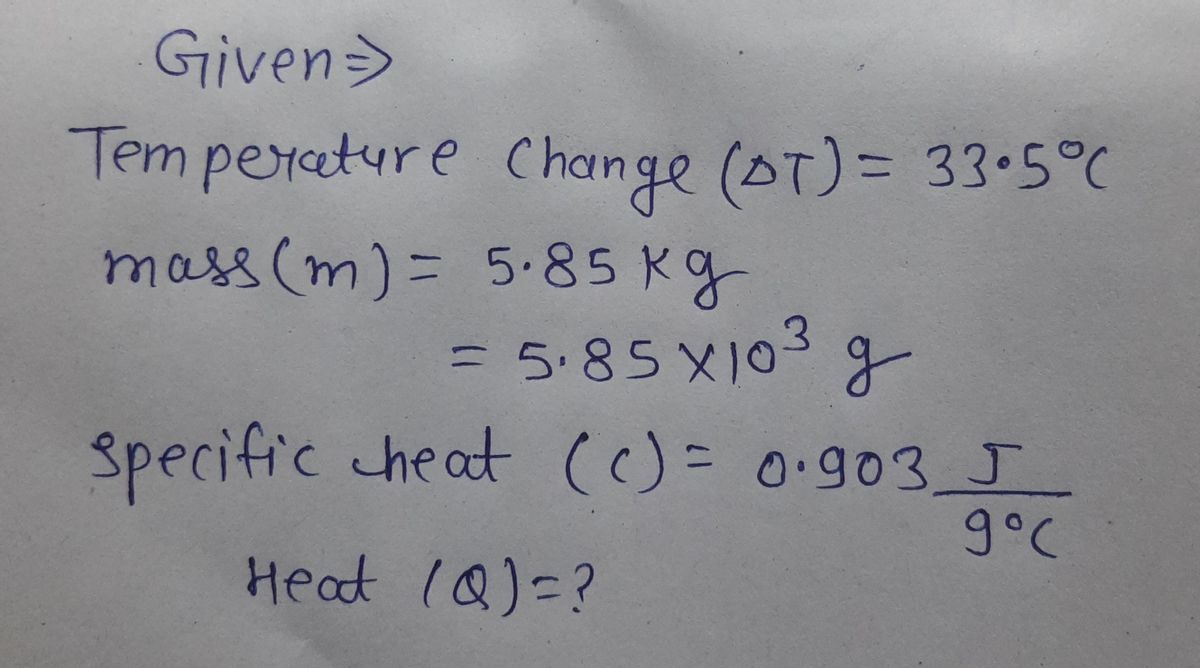 Given⇒
Temperature Change (ΔT) = 33.5°C
mass (m) = 5.85 kg
= 5.85 X10³ g
specific heat (c) = 0.903 J
g°C
Heat (Q) = ?